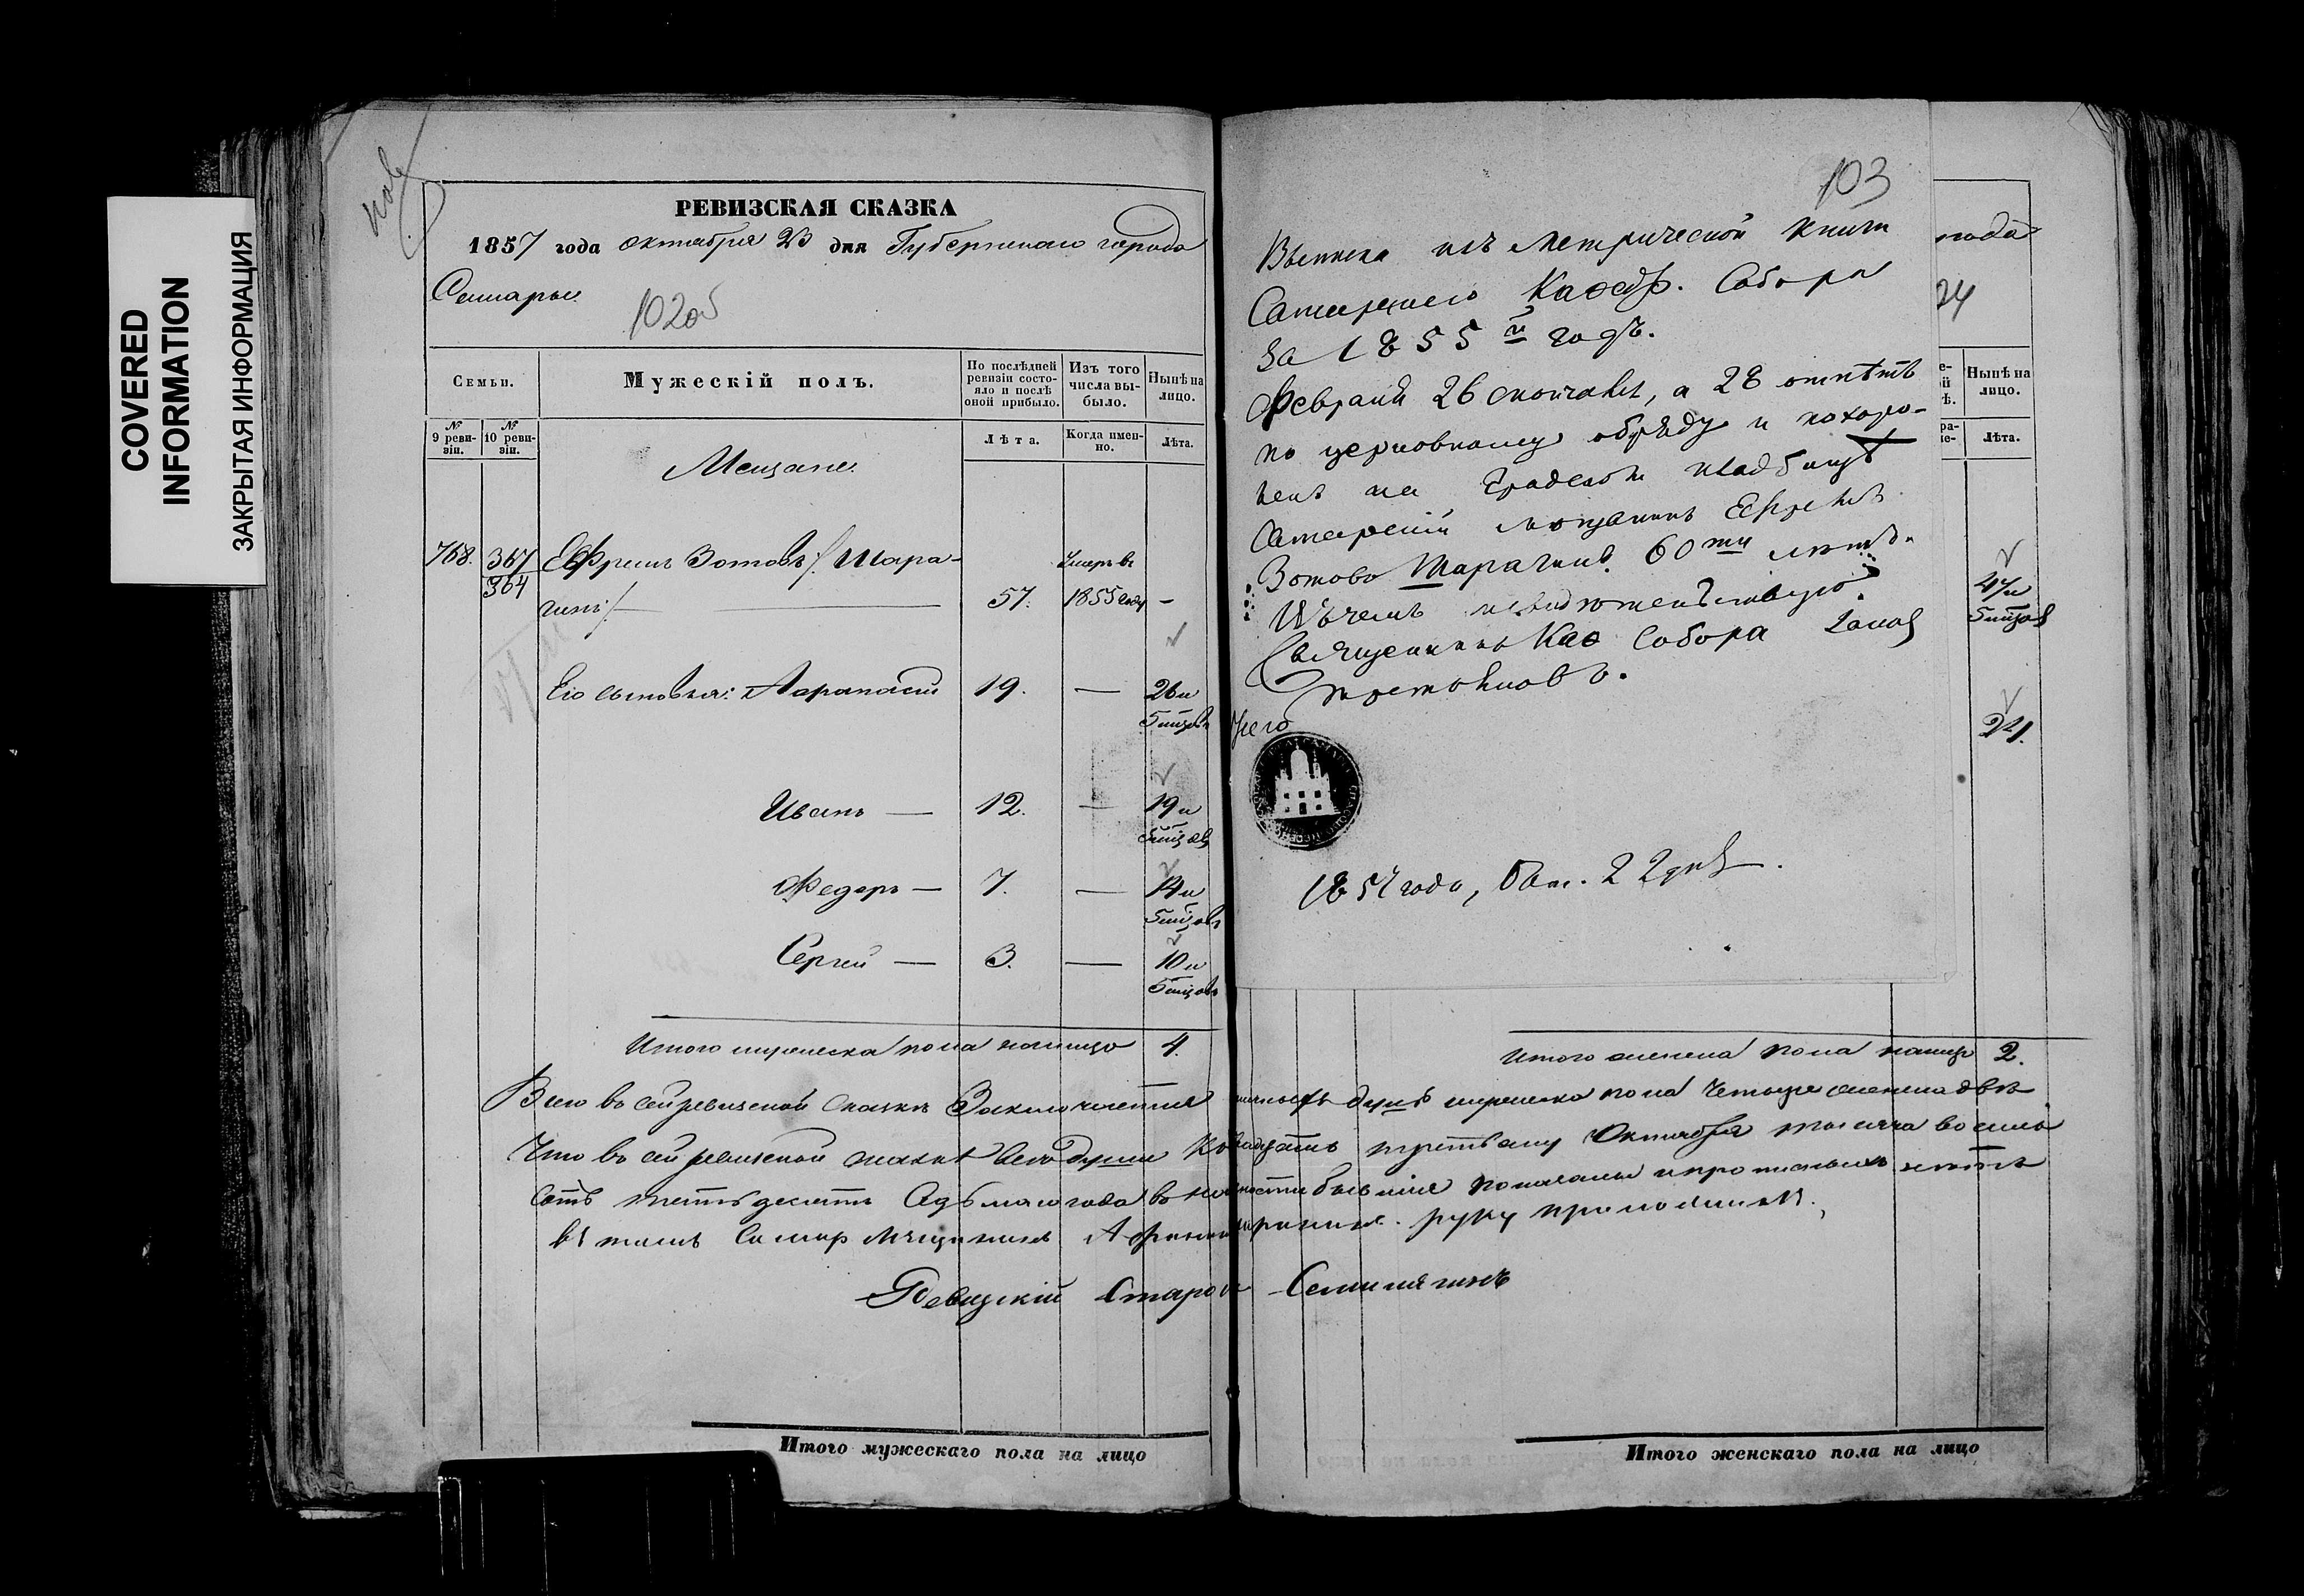 COVERED
INFORMATION
ЗАКРЫТАЯ ИНФОРМАЦИЯ
РЕВИЗСКАЯ СКАЗКА
1857 года октября 23 дня Губернскаго города
Самары
102об
Семьи.
Мужескій полъ.
По послѣдней ревизіи состояло и послѣ оной прибыло.
Изъ того числа выбыло.
Нынѣ на лицо.
№ 9 ревизіи.
№ 10 ревизіи.
Лѣта.
Когда именно.
Лѣта.
Мещане
768. 367 Ефремъ Зотовъ /: Шара- Умеръ въ
364
гинъ :/ — 57. 1855 году —
Его сыновья: Афанасій 19. — 26 и
5 мцовъ
Иванъ — 12. — 19 и
5 мцовъ
Федоръ — 7. — 14 и
5 мцовъ
Сергей — 3. — 10 и
5 мцовъ
Итого мужеска пола налицо 4.
Итого мужескаго пола на лицо
103
Выписка изъ Метрической книги
Самарскаго Каѳедр. Собора
за 1855й годъ.
Февраля 26 скончался, а 28 отпѣтъ
по церковному обряду и похоро-
ненъ на Градскомъ кладбищѣ
Самарскій мещанинъ Ефремъ
Зотовъ Шарагинъ. 60ти лѣтъ.
Въ чемъ и свидѣтельствую.
Священникъ Каѳ Собора
1857 года, Окт. 22 дня.
года
24
Нынѣ на лицо.
Лѣта.
47 и
5 мцовъ
21.
Итого женска пола налицо 2.
Всего въ сей ревизской сказкѣ Заключается душъ мужеска пола Четыре женска двѣ
Что въ сей ревизской сказкѣ всѣ души къ двадцать третьему Октября тысяча восемь
сотъ пятьдесятъ Седьмаго года въ наличности бывшія показаны и прописныхъ нѣтъ
въ томъ Самар мещанинъ руку приложилъ
Ревизскій Староста
Итого женскаго пола на лицо